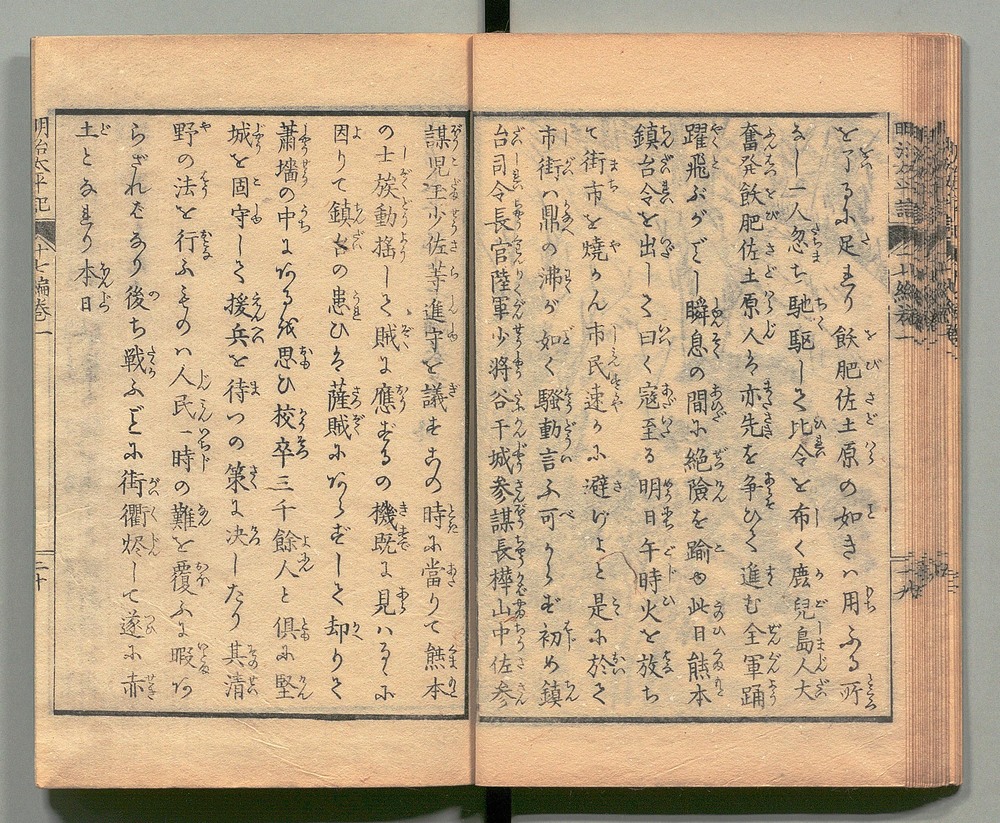 を了るに足れり飫肥佐土原の如きハ用ふる所
なし一人忽ち馳駆して比令を布く鹿児島人大
奮発飫肥佐土原人も亦先を争ひて進む全軍踊
躍飛ぶがごとし瞬息の間に絶険を踰ゆ此日熊本
鎮台令を出して曰く寇至る明日午時火を放ち
て街市を焼かん市民速かに避けよと是に於て
市街ハ鼎の沸が如く騒動言ふ可からず初め鎮
台司令長官陸軍少将谷干城参謀長樺山中佐参
謀児玉少佐等進守を議す此の時に當りて熊本
の士族動揺して賊に應ずるの機既に見ハる
因りて鎮台の患ひは薩賊にあらずして却りて
蕭墻の中にあるを思ひ校卒三千餘人と倶に堅
城を固守して援兵を待つの策に決したり其清
野の法を行ふものハ人民一時の難を覆ふに暇あ
らざればなり後ち戦ふごとに街衢烬して遂に赤
土となれり本日
明治太平記
十七編巻一
二十